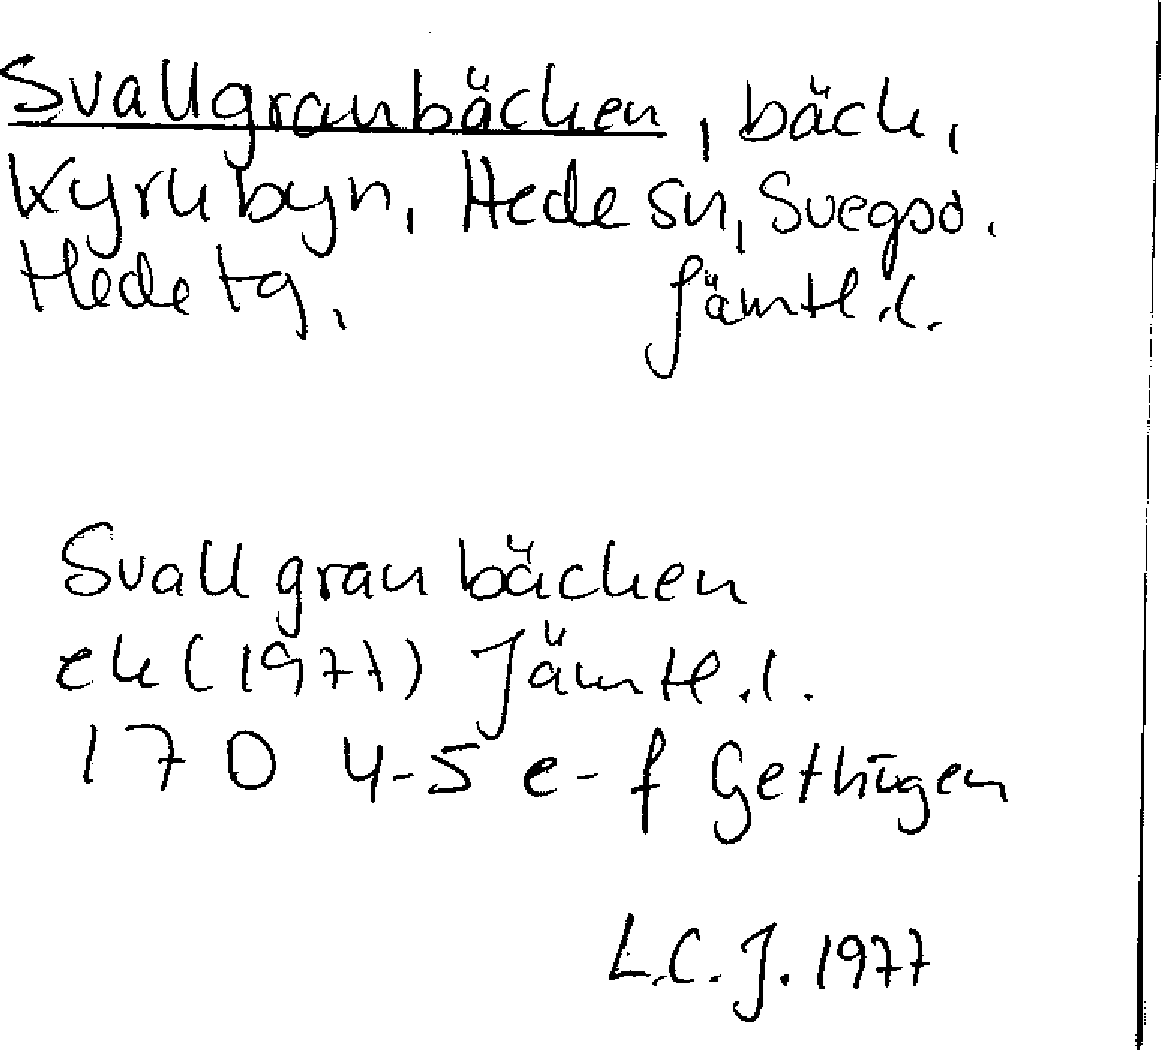 Svallgranbäcken, bäck,
Kyrkbyn, Hede sn, Svegsd.
Hede tg, Jämtl.l.
Svallgranbäcken
ek (1977) Jämtl.l.
17 D 4-5 e-f Gethågen
L.C.J. 1977